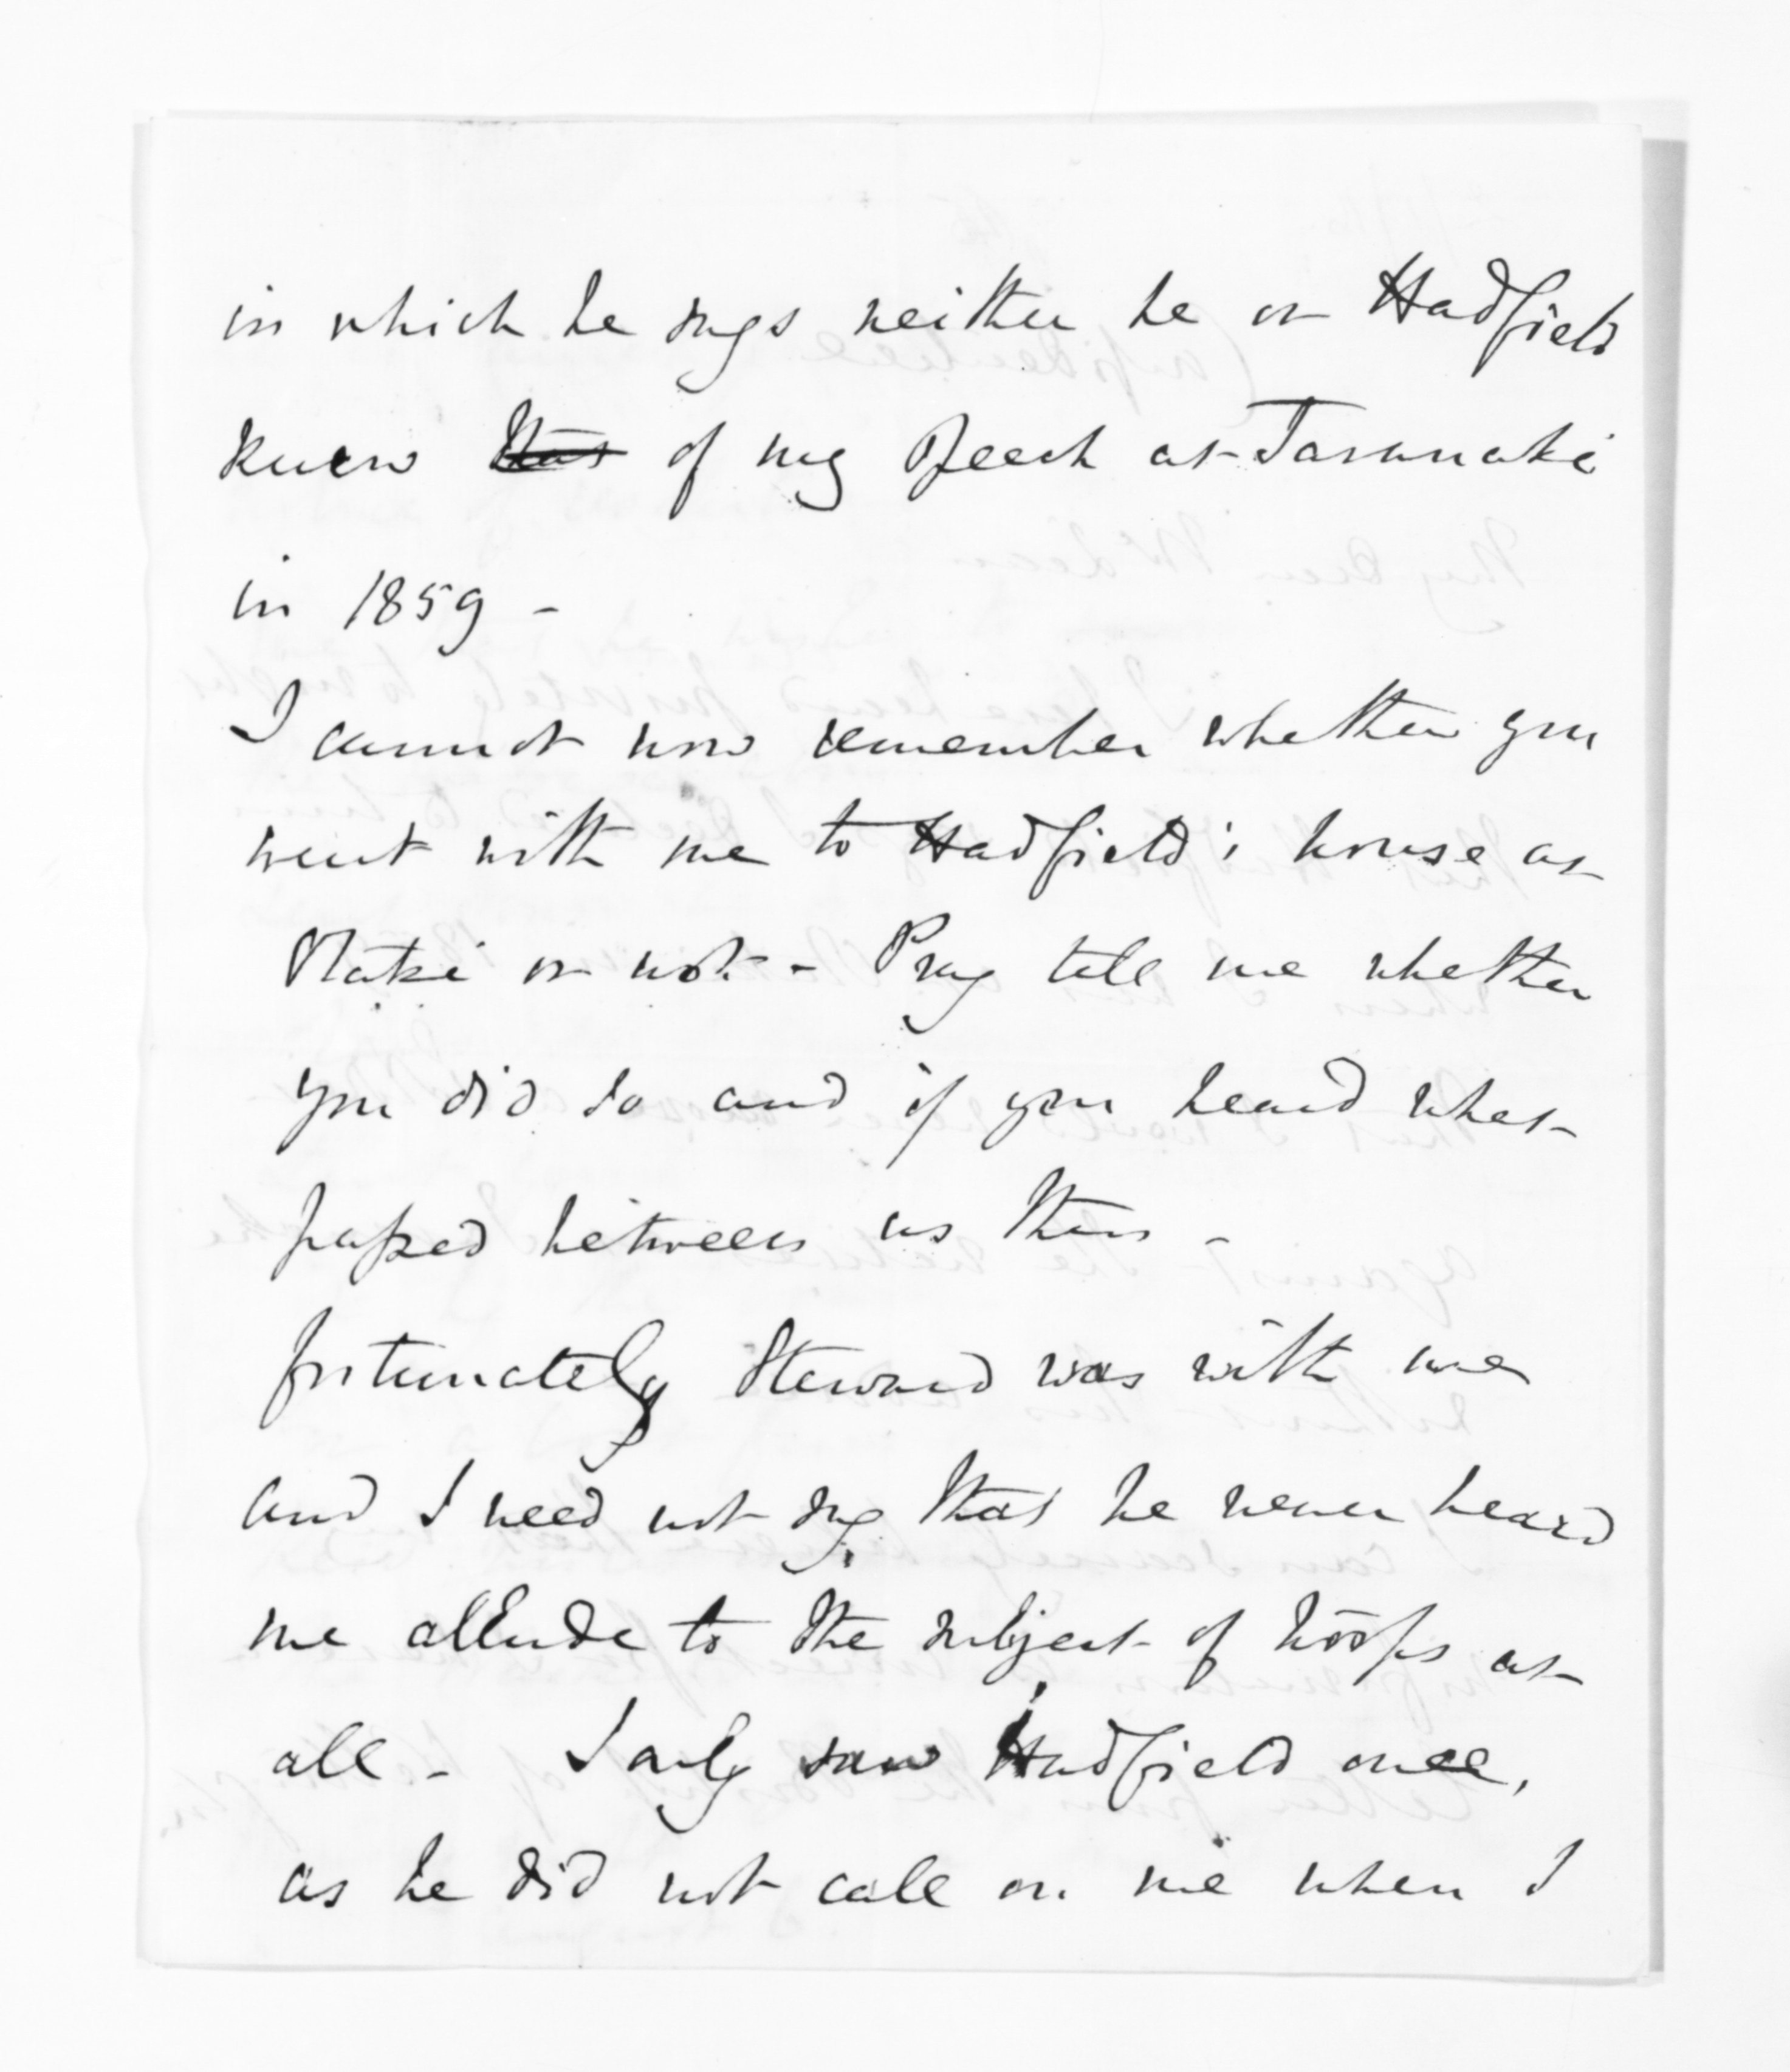 in which he says neither he or Hadfield
knew that of my Speech at Taranaki
in 1859 -
I cannot now remember whether you
went with me to Hadfield's house at
Otaki or not - Pray tell me whether
you did so and if you heard what
passed between us then -
fortunately Steward was with me
and I need not say that he never heard
me allude to the subject of troops at
all - I only saw Hadfield once,
as he did not call on me when I